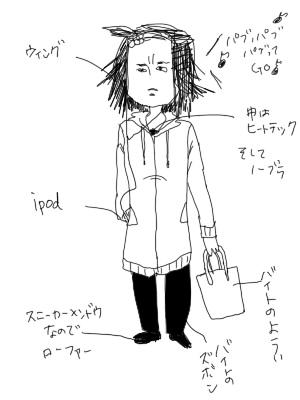 ウィング
パブパブ♪
パブって
♪GO♪
中は
ヒートテック
そして
ノーブラ
ipod
スニーカーメンドウ
なので
ローファー
バイトの
ズボン
バイトのようい